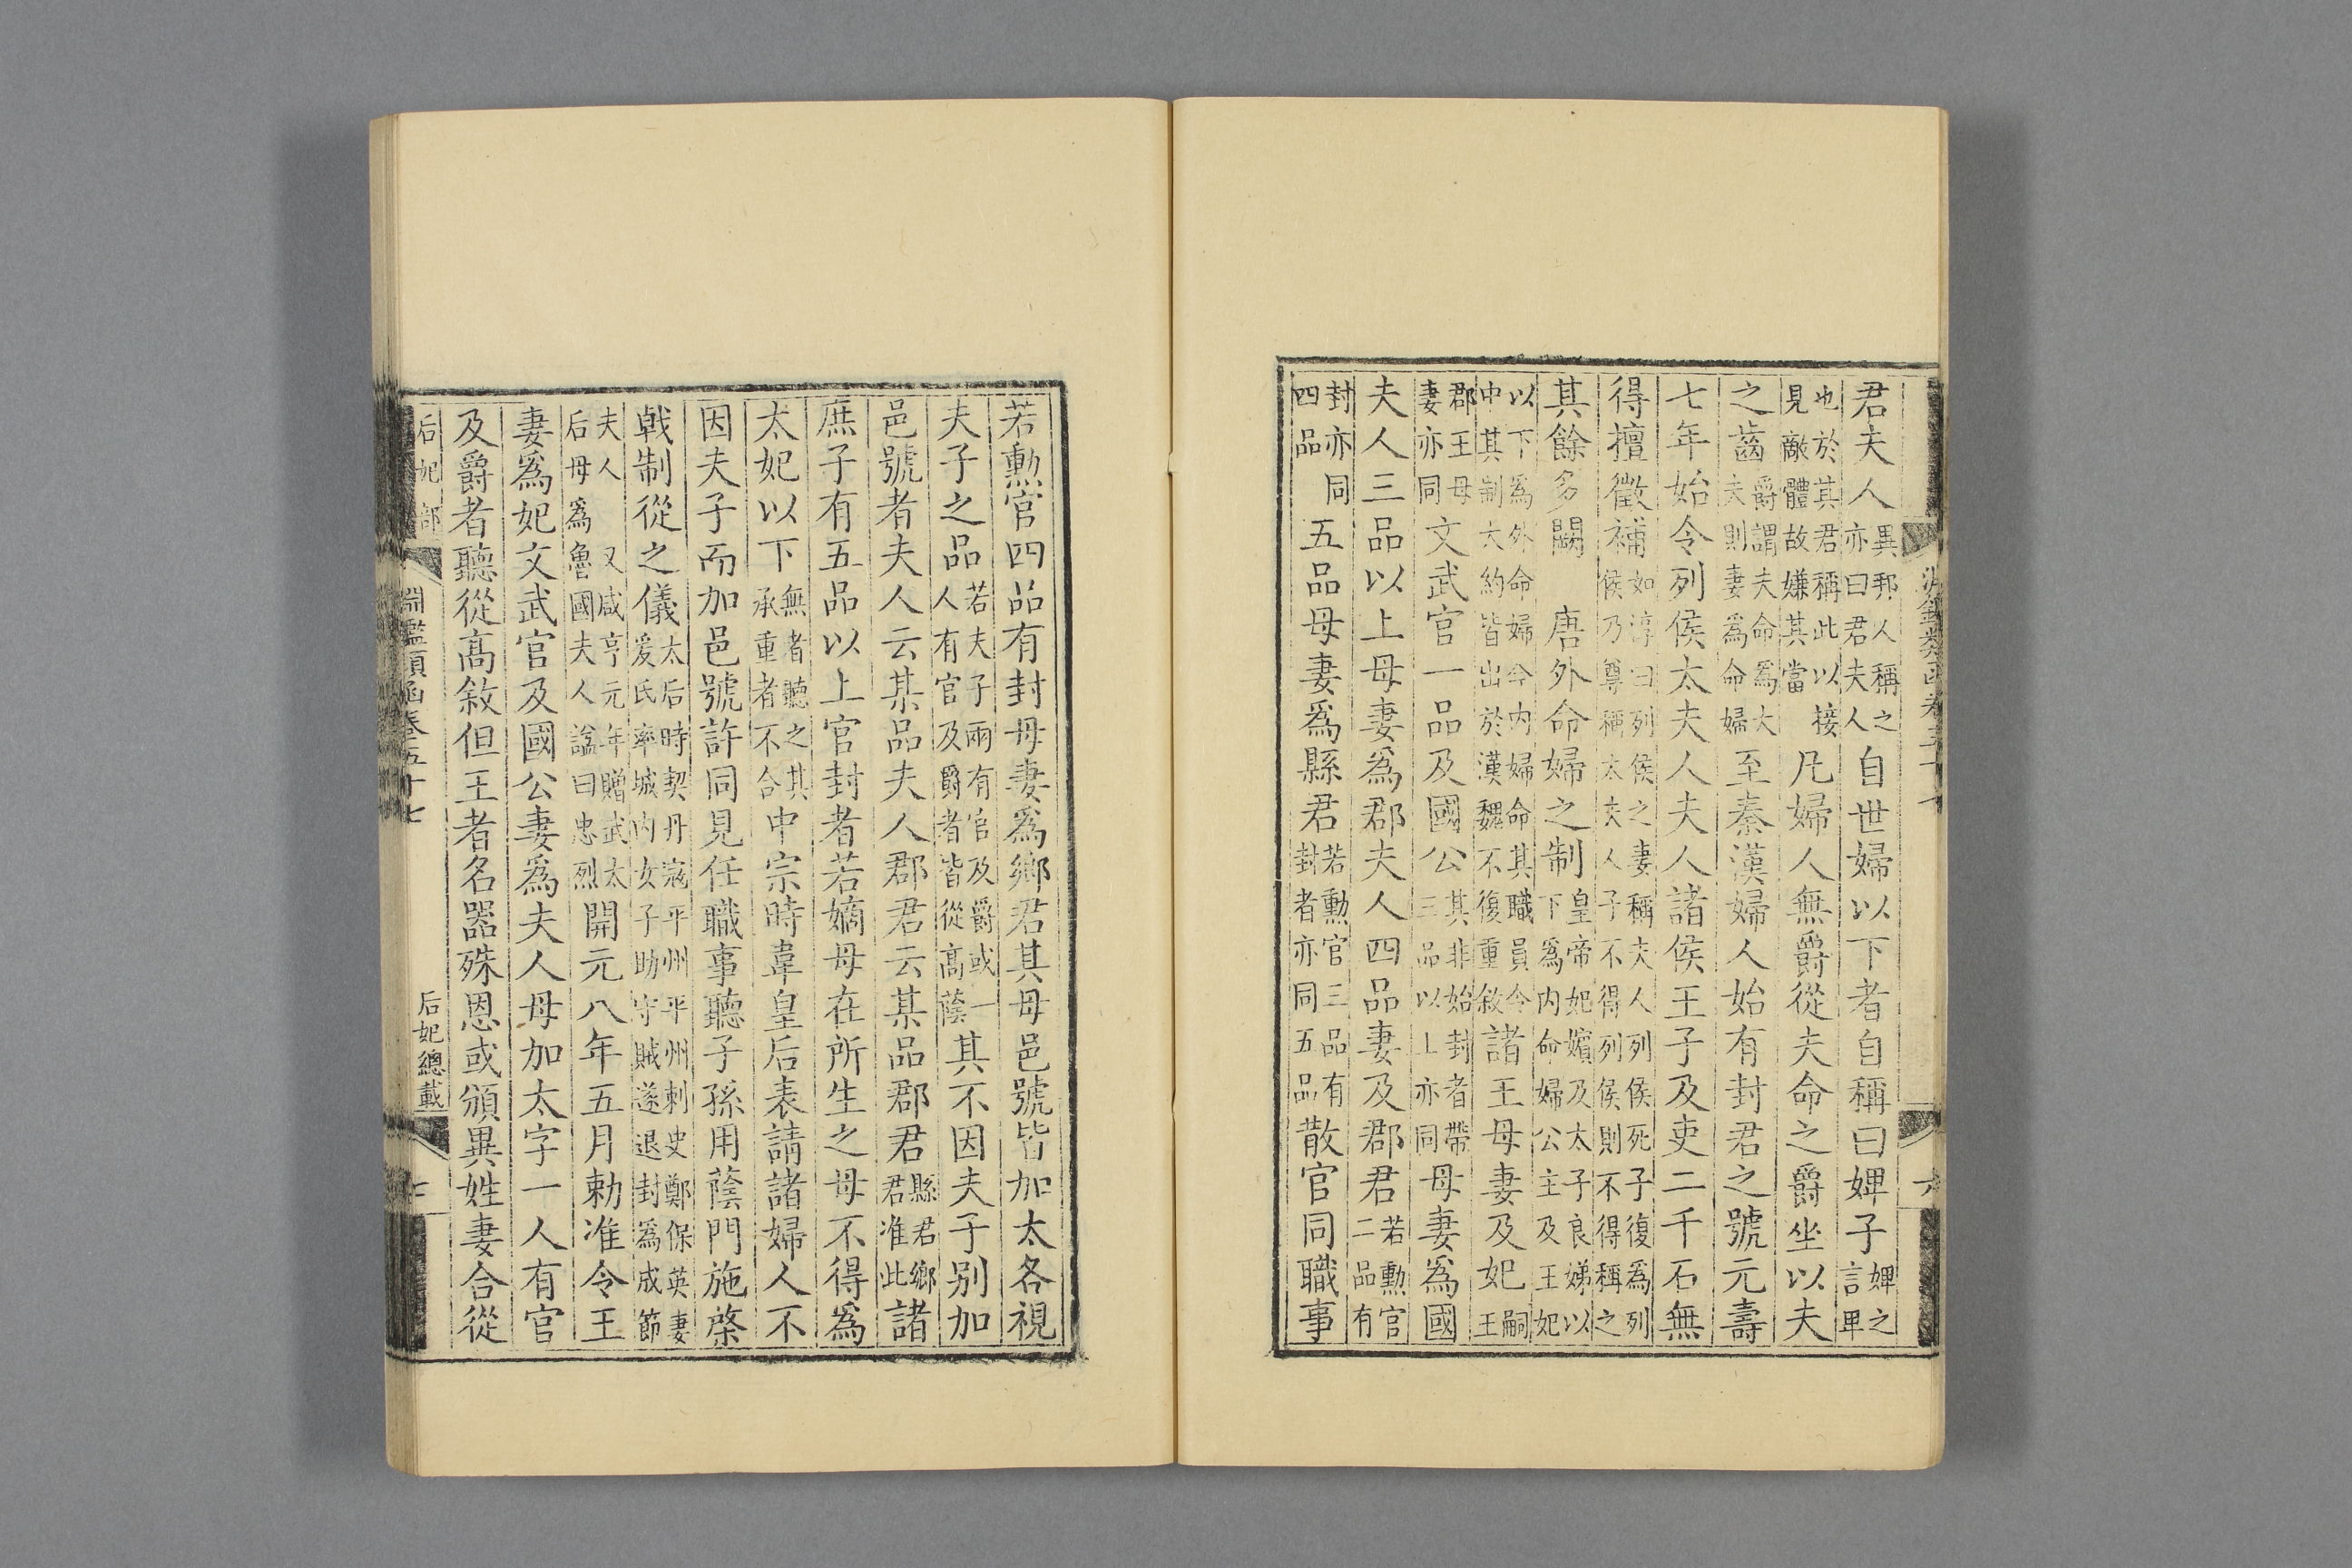 君夫人異邦人稱之亦曰君夫人自世婦以下者自稱曰婢子婢之言卑
也於其君稱此以接見敵體故嫌其當凡婦人無爵從夫命之爵坐以夫
之齒爵謂夫命爲大夫則妻爲命婦至秦漢婦人始有封君之號元壽
七年始令列侯太夫人夫人諸侯王子及吏二千石無
得擅徵補如淳曰列侯之妻稱夫人列侯死子復爲列侯乃尊稱太夫人子不得列侯則不得稱之
其餘多闕 唐外命婦之制皇帝妃嬪及太子良娣以下爲内命婦公主及王妃
以下爲外命婦今内婦命其職員令中其制大約皆出於漢魏不復重敘諸王母妻及妃嗣王
郡王母妻亦同文武官一品及國公其非始封者帶三品以上亦同母妻爲國
夫人三品以上母妻爲郡夫人四品妻及郡君若勳官二品有
封亦同四品五品母妻爲縣君若勳官三品有封者亦同五品散官同職事
若勳官四品有封母妻爲鄉君其母邑號皆加太各視
夫子之品若夫子兩有官及爵或一人有官及爵者皆從高蔭其不因夫子别加
邑號者夫人云某品夫人郡君云某品郡君縣君鄉君准此諸
庶子有五品以上官封者若嫡母在所生之母不得爲
太妃以下無者聽之其承重者不合中宗時韋皇后表請諸婦人不
因夫子而加邑號許同見任職事聽子孫用蔭門施棨
戟制從之儀太后時契丹寇平州平州刺史鄭保英妻奚氏率城内女子助守賊遂退封爲成節
夫人又咸亨元年贈武太后母爲魯國夫人諡曰忠烈開元八年五月勅准令王
妻爲妃文武官及國公妻爲夫人母加太字一人有官
及爵者聽從高敘但王者名器殊恩或頒異姓妻合從
后妃部 淵鑑類函卷五十七 后妃總載 七